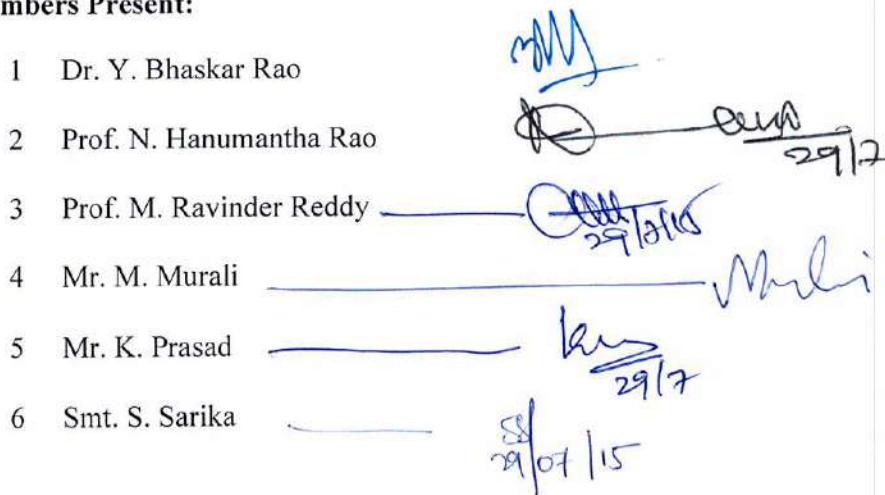 mbers Present:
1 Dr. Y. Bhaskar Rao
2 Prof. N. Hanumantha Rao
29/7
3 Prof. M. Ravinder Reddy
29/7/15
4 Mr. M. Murali Murali
5 Mr. K. Prasad
29/7
6 Smt. S. Sarika SS
29/07/15